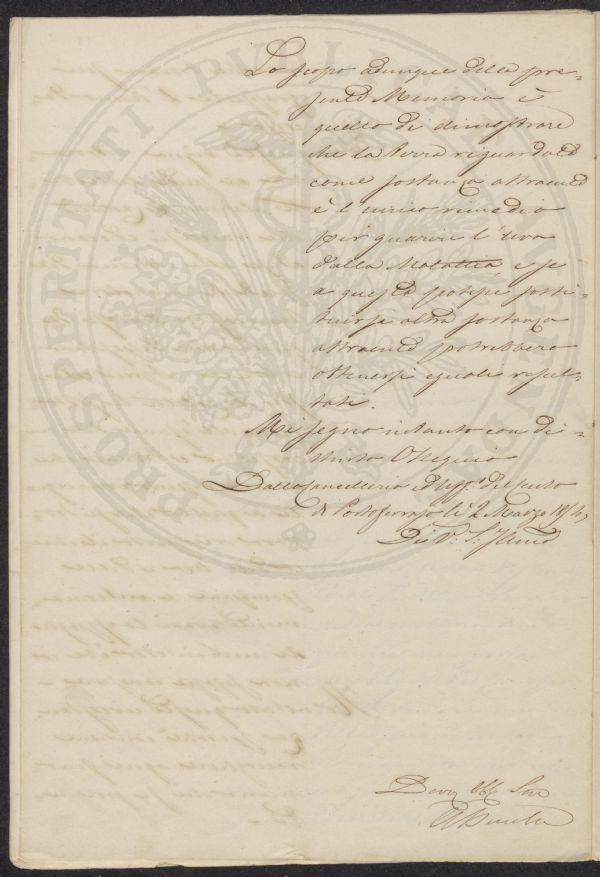 Lo scopo adunque della pre=
sente Memoria è
quello di dimostrare
che la terra riguardata
come sostanza attraente
è l'unico rimedio
per guarire l'uva
dalla Malattia, e se
a questa potesse sosti=
tuirsi altra sostanza
attraente potrebbero
ottenersi eguali resul=
tati.
Mi segno intanto con di=
stinto Ossequio
Dalla Cancelleria
di Portoferrajo li 2 Marzo 1854
Di V: S: Illma
Devmo Obb Ser
PROSPERITATI PUBLICAE AUGENDAE